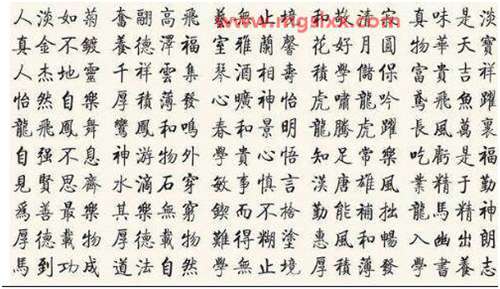 www.mgslxx.com
人淡如菊 奮翮高飛 無止境 和敬清 真味是淡
真金不鍍 養德澤福 室雅蘭馨 花好月圓 物華天寶
人杰地靈 千祥雲集 琴酒相壽 積學儲 富貴吉祥
怡然自樂 厚積薄發 心曠神怡 虎嘯龍吟 鳶飛魚躍
龍飛鳳舞 鸞鳳和鳴 春和景明 龍騰虎躍 長風萬裏
自强不息 神游物外 學貴心悟 知足常樂 吃虧是福
見賢思齊 水滴石穿 敏事慎言 漢唐雄風 業精于勤
爲善最樂 其樂無窮 鍥而不捨 勤能補拙 龍馬精神
厚德載物 厚德載物 難得糊塗 惠風和暢 入幽出朗
馬到功成 道法自然 學無止境 厚積薄發 學書養志